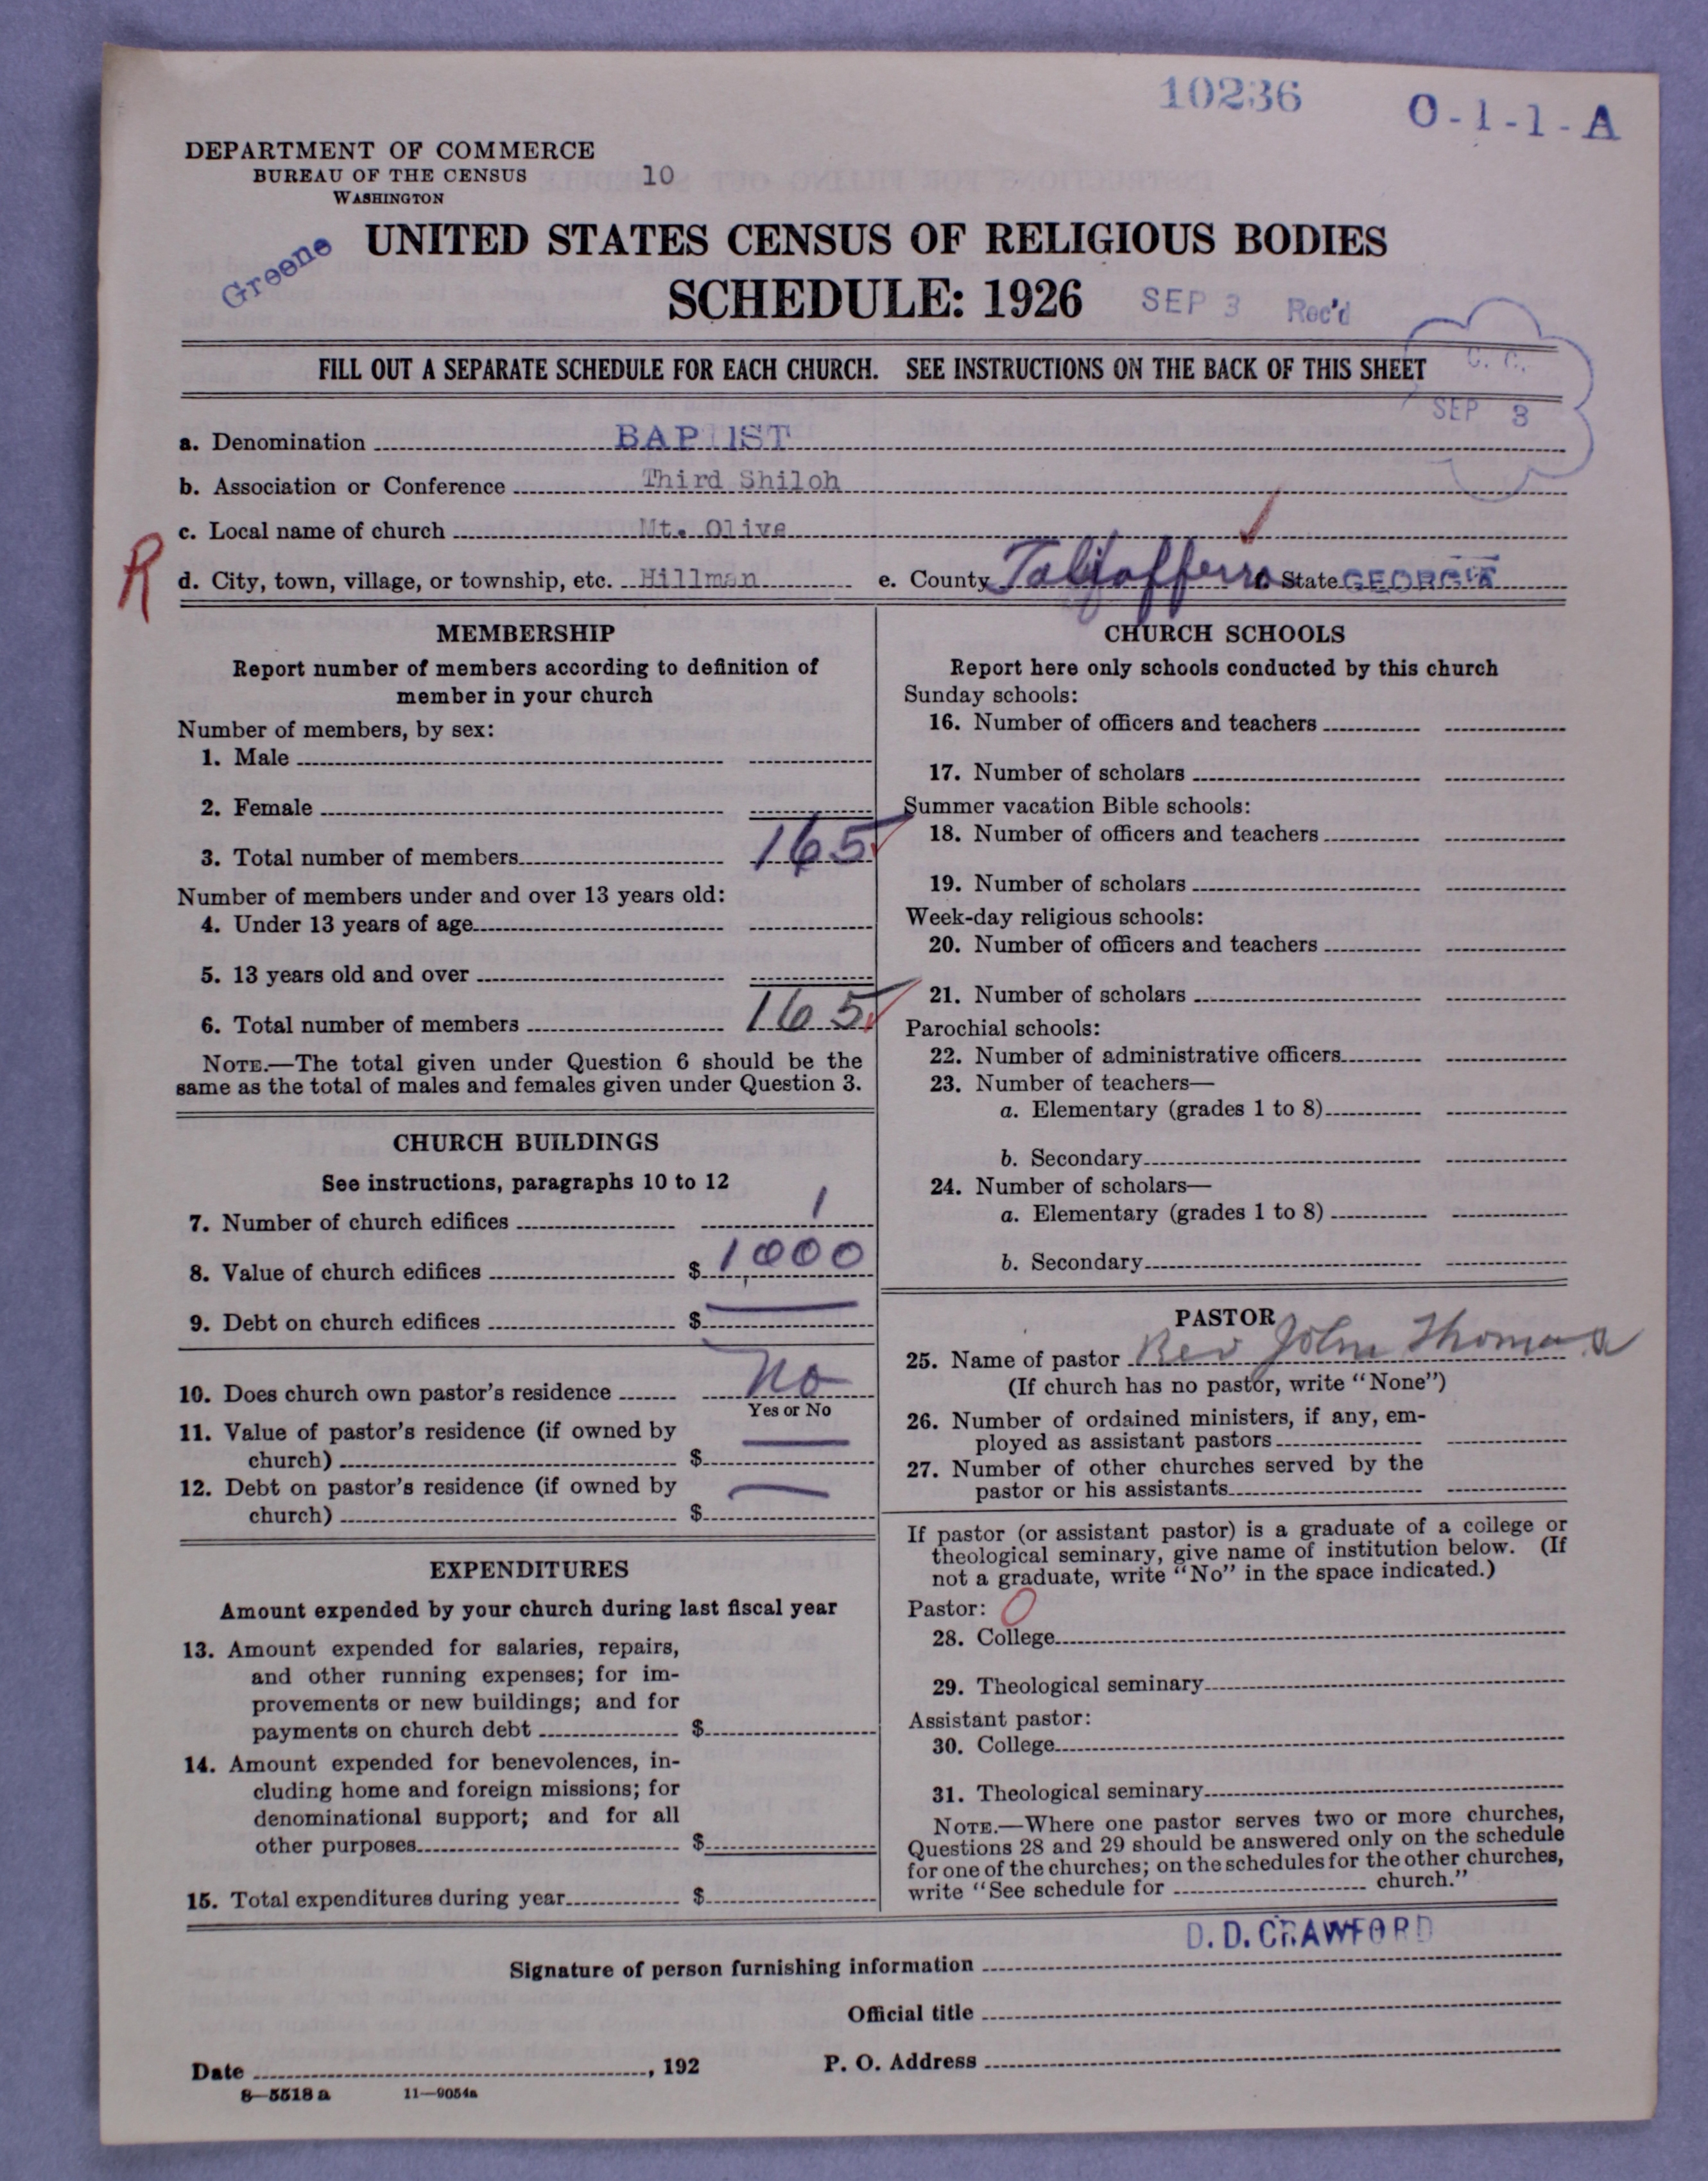 10236
O-1-1-A
DEPARTMENT OF COMMERCE
BUREAU OF THE CENSUS
WASHINGTON
10
Greene
UNITED STATES CENSUS OF RELIGIOUS BODIES
SCHEDULE: 1926
SEP 3 Rec'd
FILL OUT A SEPARATE SCHEDULE FOR EACH CHURCH. SEE INSTRUCTIONS ON THE BACK OF THIS SHEET
C. C.
SEP 3
a. Denomination BAPTIST
b. Association or Conference Third Shiloh
c. Local name of church Mt. Olive
R
d. City, town, village, or township, etc. Hillman e. County Taliafferro State GEORGIA
MEMBERSHIP
Report number of members according to definition of
member in your church
Number of members, by sex:
1. Male
2. Female
3. Total number of members 165
Number of members under and over 13 years old:
4. Under 13 years of age
5. 13 years old and over
6. Total number of members 165
NOTE.—The total given under Question 6 should be the
same as the total of males and females given under Question 3.
CHURCH BUILDINGS
See instructions, paragraphs 10 to 12
7. Number of church edifices 1
8. Value of church edifices $ 1000
9. Debt on church edifices $
10. Does church own pastor's residence No
Yes or No
11. Value of pastor's residence (if owned by
church) $
12. Debt on pastor's residence (if owned by
church) $
EXPENDITURES
Amount expended by your church during last fiscal year
13. Amount expended for salaries, repairs,
and other running expenses; for im-
provements or new buildings; and for
payments on church debt $
14. Amount expended for benevolences, in-
cluding home and foreign missions; for
denominational support; and for all
other purposes $
15. Total expenditures during year $
CHURCH SCHOOLS
Report here only schools conducted by this church
Sunday schools:
16. Number of officers and teachers
17. Number of scholars
Summer vacation Bible schools:
18. Number of officers and teachers
19. Number of scholars
Week-day religious schools:
20. Number of officers and teachers
21. Number of scholars
Parochial schools:
22. Number of administrative officers
23. Number of teachers—
a. Elementary (grades 1 to 8)
b. Secondary
24. Number of scholars—
a. Elementary (grades 1 to 8)
b. Secondary
PASTOR
25. Name of pastor Rev John Thomas
(If church has no pastor, write "None")
26. Number of ordained ministers, if any, em-
ployed as assistant pastors
27. Number of other churches served by the
pastor or his assistants
If pastor (or assistant pastor) is a graduate of a college or
theological seminary, give name of institution below. (If
not a graduate, write "No" in the space indicated.)
Pastor: 0
28. College
29. Theological seminary
Assistant pastor:
30. College
31. Theological seminary
NOTE.—Where one pastor serves two or more churches,
Questions 28 and 29 should be answered only on the schedule
for one of the churches; on the schedules for the other churches,
write "See schedule for church."
Signature of person furnishing information D. D. CRAWFORD
Official title
Date , 192 P. O. Address
8—5518 a 11—9054a